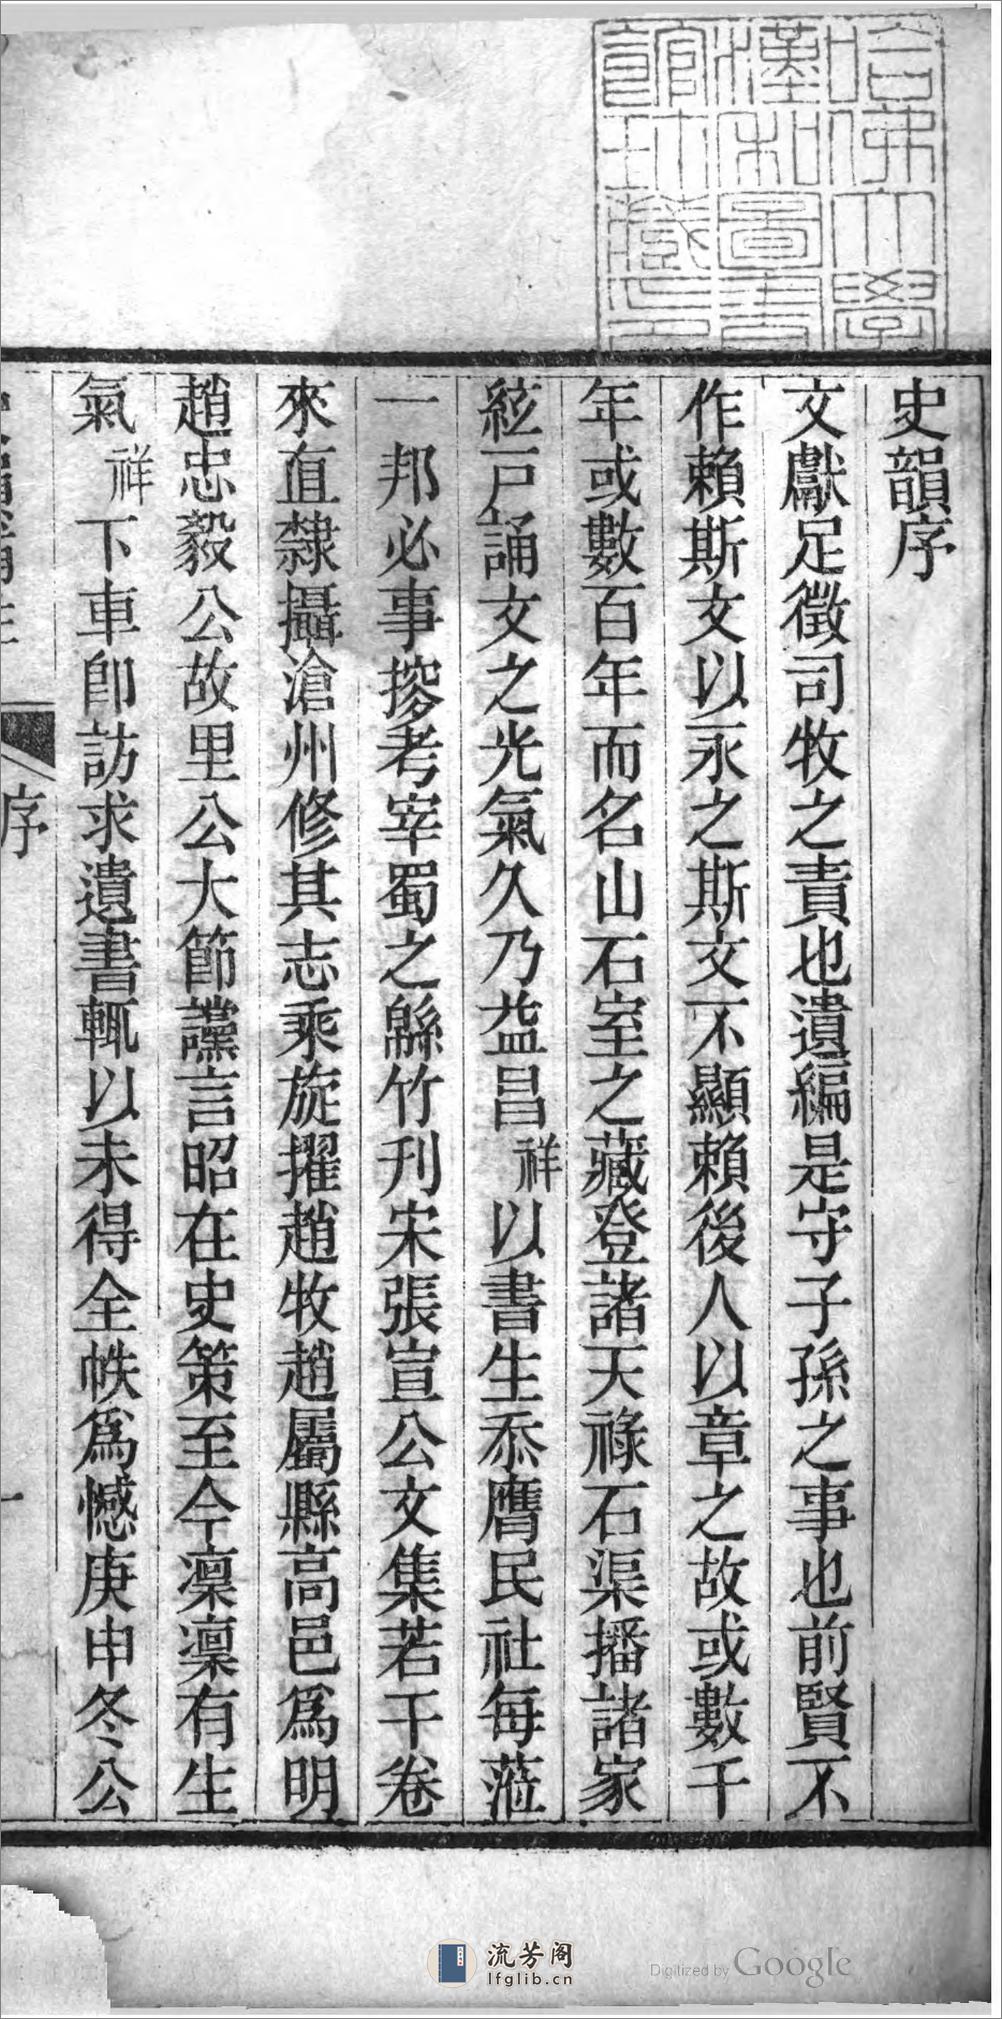 哈佛大學
漢和圖書
館珍藏印
史韻序
文獻足徵司牧之責也遺編是守子孫之事也前賢不
作賴斯文以永之斯文不顯賴後人以章之故或數千
年或數百年而名山石室之藏登諸天祿石渠播諸家
絃戸誦文之光氣久乃益昌祥以書生忝膺民社每蒞
一邦必事搜考宰蜀之緜竹刊宋張宣公文集若干卷
來直隸攝滄州修其志乘旋擢趙牧趙屬縣高邑爲明
趙忠毅公故里公大節讜言昭在史策至今凜凜有生
氣祥下車卽訪求遺書輒以未得全帙爲憾庚申冬公
序
一
流芳阁
lfglib.cn
Digitized by Google